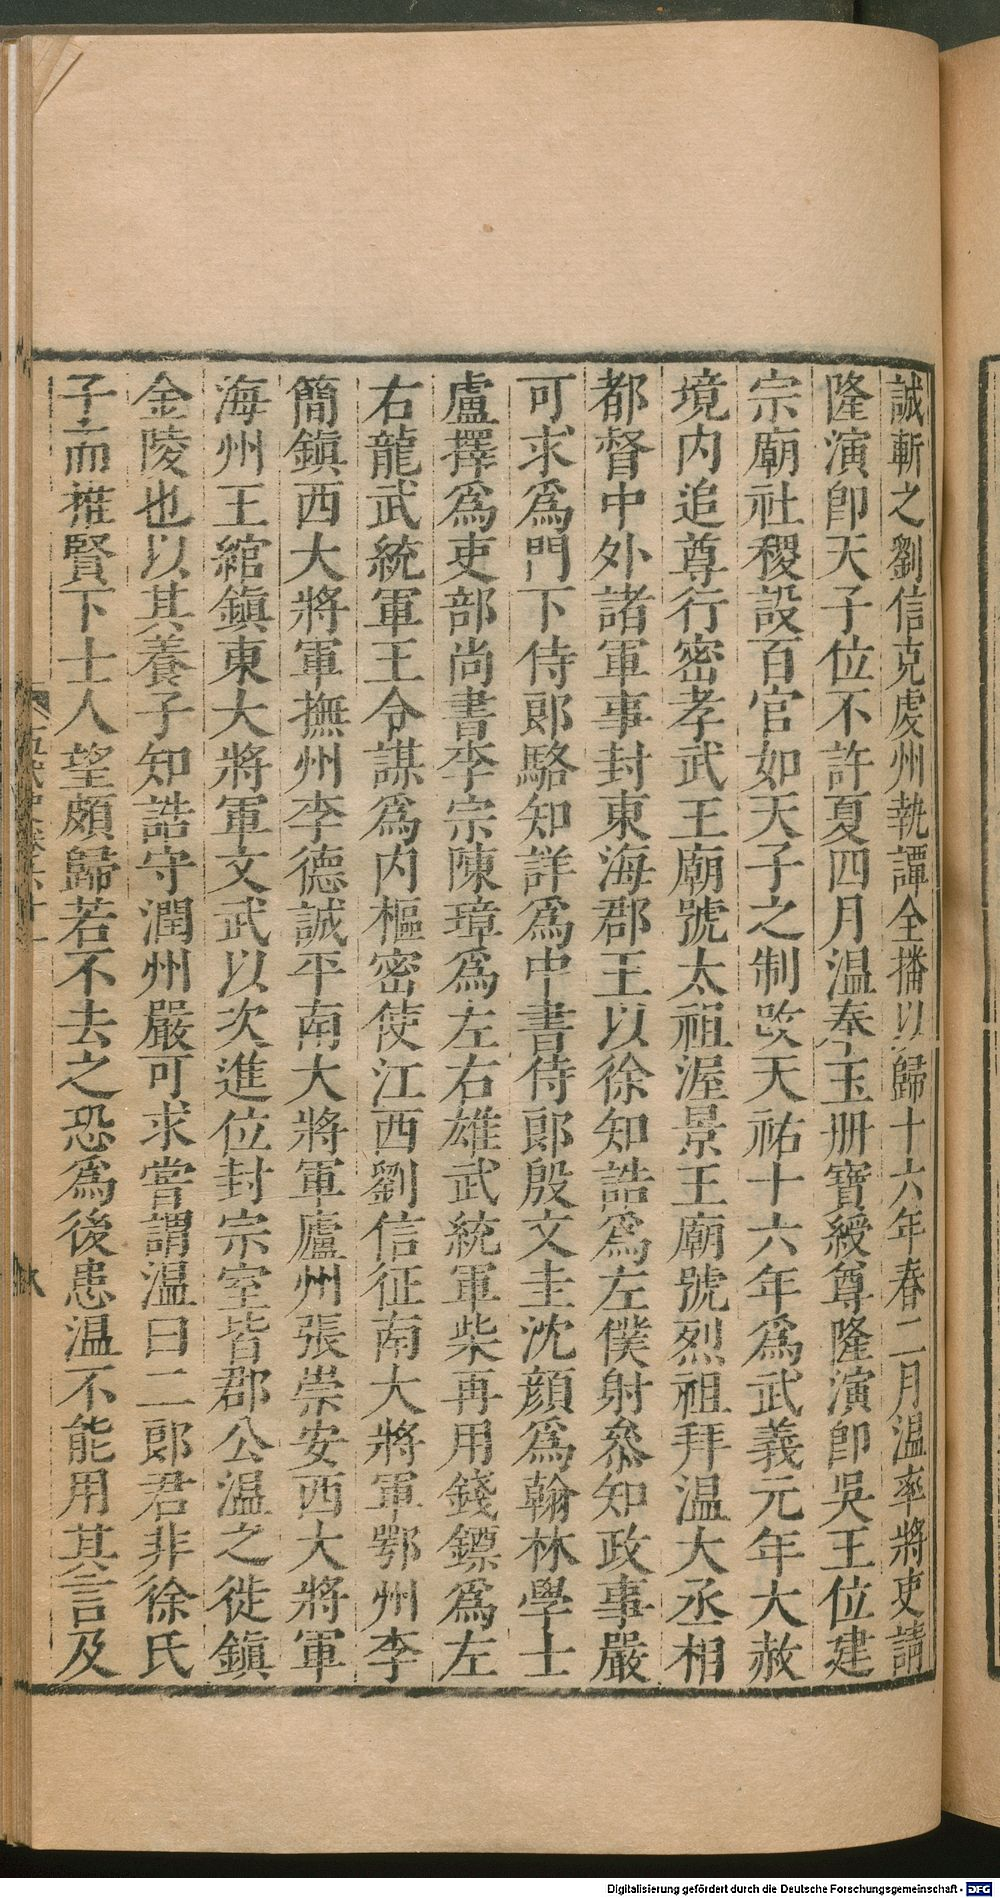 誠斬之劉信克虔州執譚全播以歸十六年春二月温率將吏請
隆演卽天子位不許夏四月温奉玉册寶綬尊隆演卽吳王位建
宗廟社稷設百官如天子之制改天祐十六年爲武義元年大赦
境内追尊行密孝武王廟號太祖渥景王廟號烈祖拜温大丞相
都督中外諸軍事封東海郡王以徐知誥爲左僕射叅知政事嚴
可求爲門下侍郎駱知詳爲中書侍郎殷文圭沈顔爲翰林學士
盧擇爲吏部尚書李宗陳璋爲左右雄武統軍柴再用錢鏢爲左
右龍武統軍王令謀爲内樞密使江西劉信征南大將軍鄂州李
簡鎭西大將軍撫州李德誠平南大將軍廬州張崇安西大將軍
海州王綰鎭東大將軍文武以次進位封宗室皆郡公温之徙鎭
金陵也以其養子知誥守潤州嚴可求嘗謂温曰二郎君非徐氏
子而推賢下士人望頗歸若不去之恐爲後患温不能用其言及
五代史卷六十一
Digitalisierung gefördert durch die Deutsche Forschungsgemeinschaft - DFG